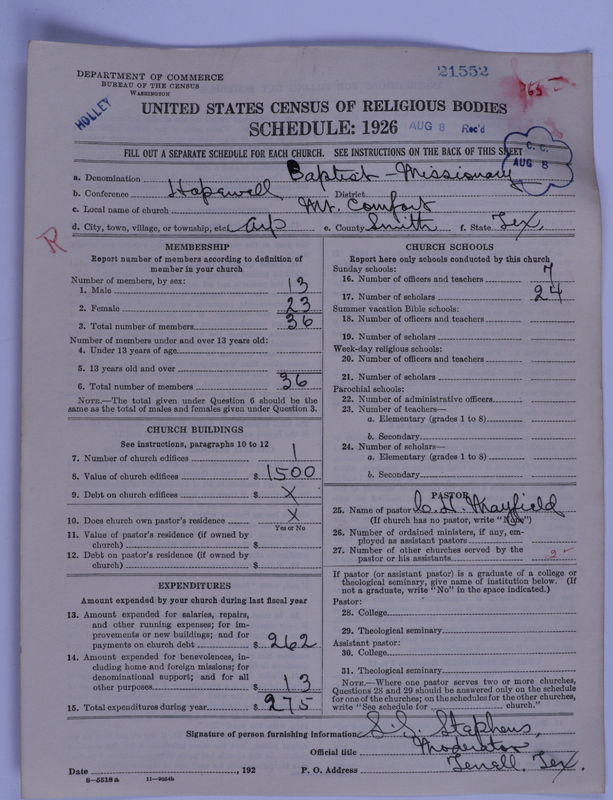 21552
DEPARTMENT OF COMMERCE
BUREAU OF THE CENSUS
WASHINGTON
HOLLEY
UNITED STATES CENSUS OF RELIGIOUS BODIES
SCHEDULE: 1926 AUG 8 Rec'd
C. C.
AUG 8
FILL OUT A SEPARATE SCHEDULE FOR EACH CHURCH. SEE INSTRUCTIONS ON THE BACK OF THIS SHEET
a. Denomination Baptist - Missionary
b. Conference Hopewell District
c. Local name of church Mt. Comfort
d. City, town, village, or township, etc. Arp e. County Smith f. State Tex.
R
MEMBERSHIP
Report number of members according to definition of
member in your church
Number of members, by sex:
1. Male 13
2. Female 23
3. Total number of members 36
Number of members under and over 13 years old:
4. Under 13 years of age
5. 13 years old and over
6. Total number of members 36
NOTE.—The total given under Question 6 should be the
same as the total of males and females given under Question 3.
CHURCH BUILDINGS
See instructions, paragraphs 10 to 12
7. Number of church edifices 1
8. Value of church edifices $ 1500
9. Debt on church edifices $ X
10. Does church own pastor's residence X
Yes or No
11. Value of pastor's residence (if owned by
church) $
12. Debt on pastor's residence (if owned by
church) $
EXPENDITURES
Amount expended by your church during last fiscal year
13. Amount expended for salaries, repairs,
and other running expenses; for im-
provements or new buildings; and for
payments on church debt $ 262
14. Amount expended for benevolences, in-
cluding home and foreign missions; for
denominational support; and for all
other purposes $ 13
15. Total expenditures during year $ 275
CHURCH SCHOOLS
Report here only schools conducted by this church
Sunday schools:
16. Number of officers and teachers 7
17. Number of scholars 24
Summer vacation Bible schools:
18. Number of officers and teachers
19. Number of scholars
Week-day religious schools:
20. Number of officers and teachers
21. Number of scholars
Parochial schools:
22. Number of administrative officers
23. Number of teachers—
a. Elementary (grades 1 to 8)
b. Secondary
24. Number of scholars—
a. Elementary (grades 1 to 8)
b. Secondary
PASTOR
25. Name of pastor Mayfield
(If church has no pastor, write "None")
26. Number of ordained ministers, if any, em-
ployed as assistant pastors
27. Number of other churches served by the
pastor or his assistants
If pastor (or assistant pastor) is a graduate of a college or
theological seminary, give name of institution below. (If
not a graduate, write "No" in the space indicated.)
Pastor:
28. College
29. Theological seminary
Assistant pastor:
30. College
31. Theological seminary
NOTE.—Where one pastor serves two or more churches,
Questions 28 and 29 should be answered only on the schedule
for one of the churches; on the schedules for the other churches,
write "See schedule for church."
Signature of person furnishing information S. S. Stephens,
Official title Moderator
Date , 192 P. O. Address Terrell, Tex.
8-5518 a